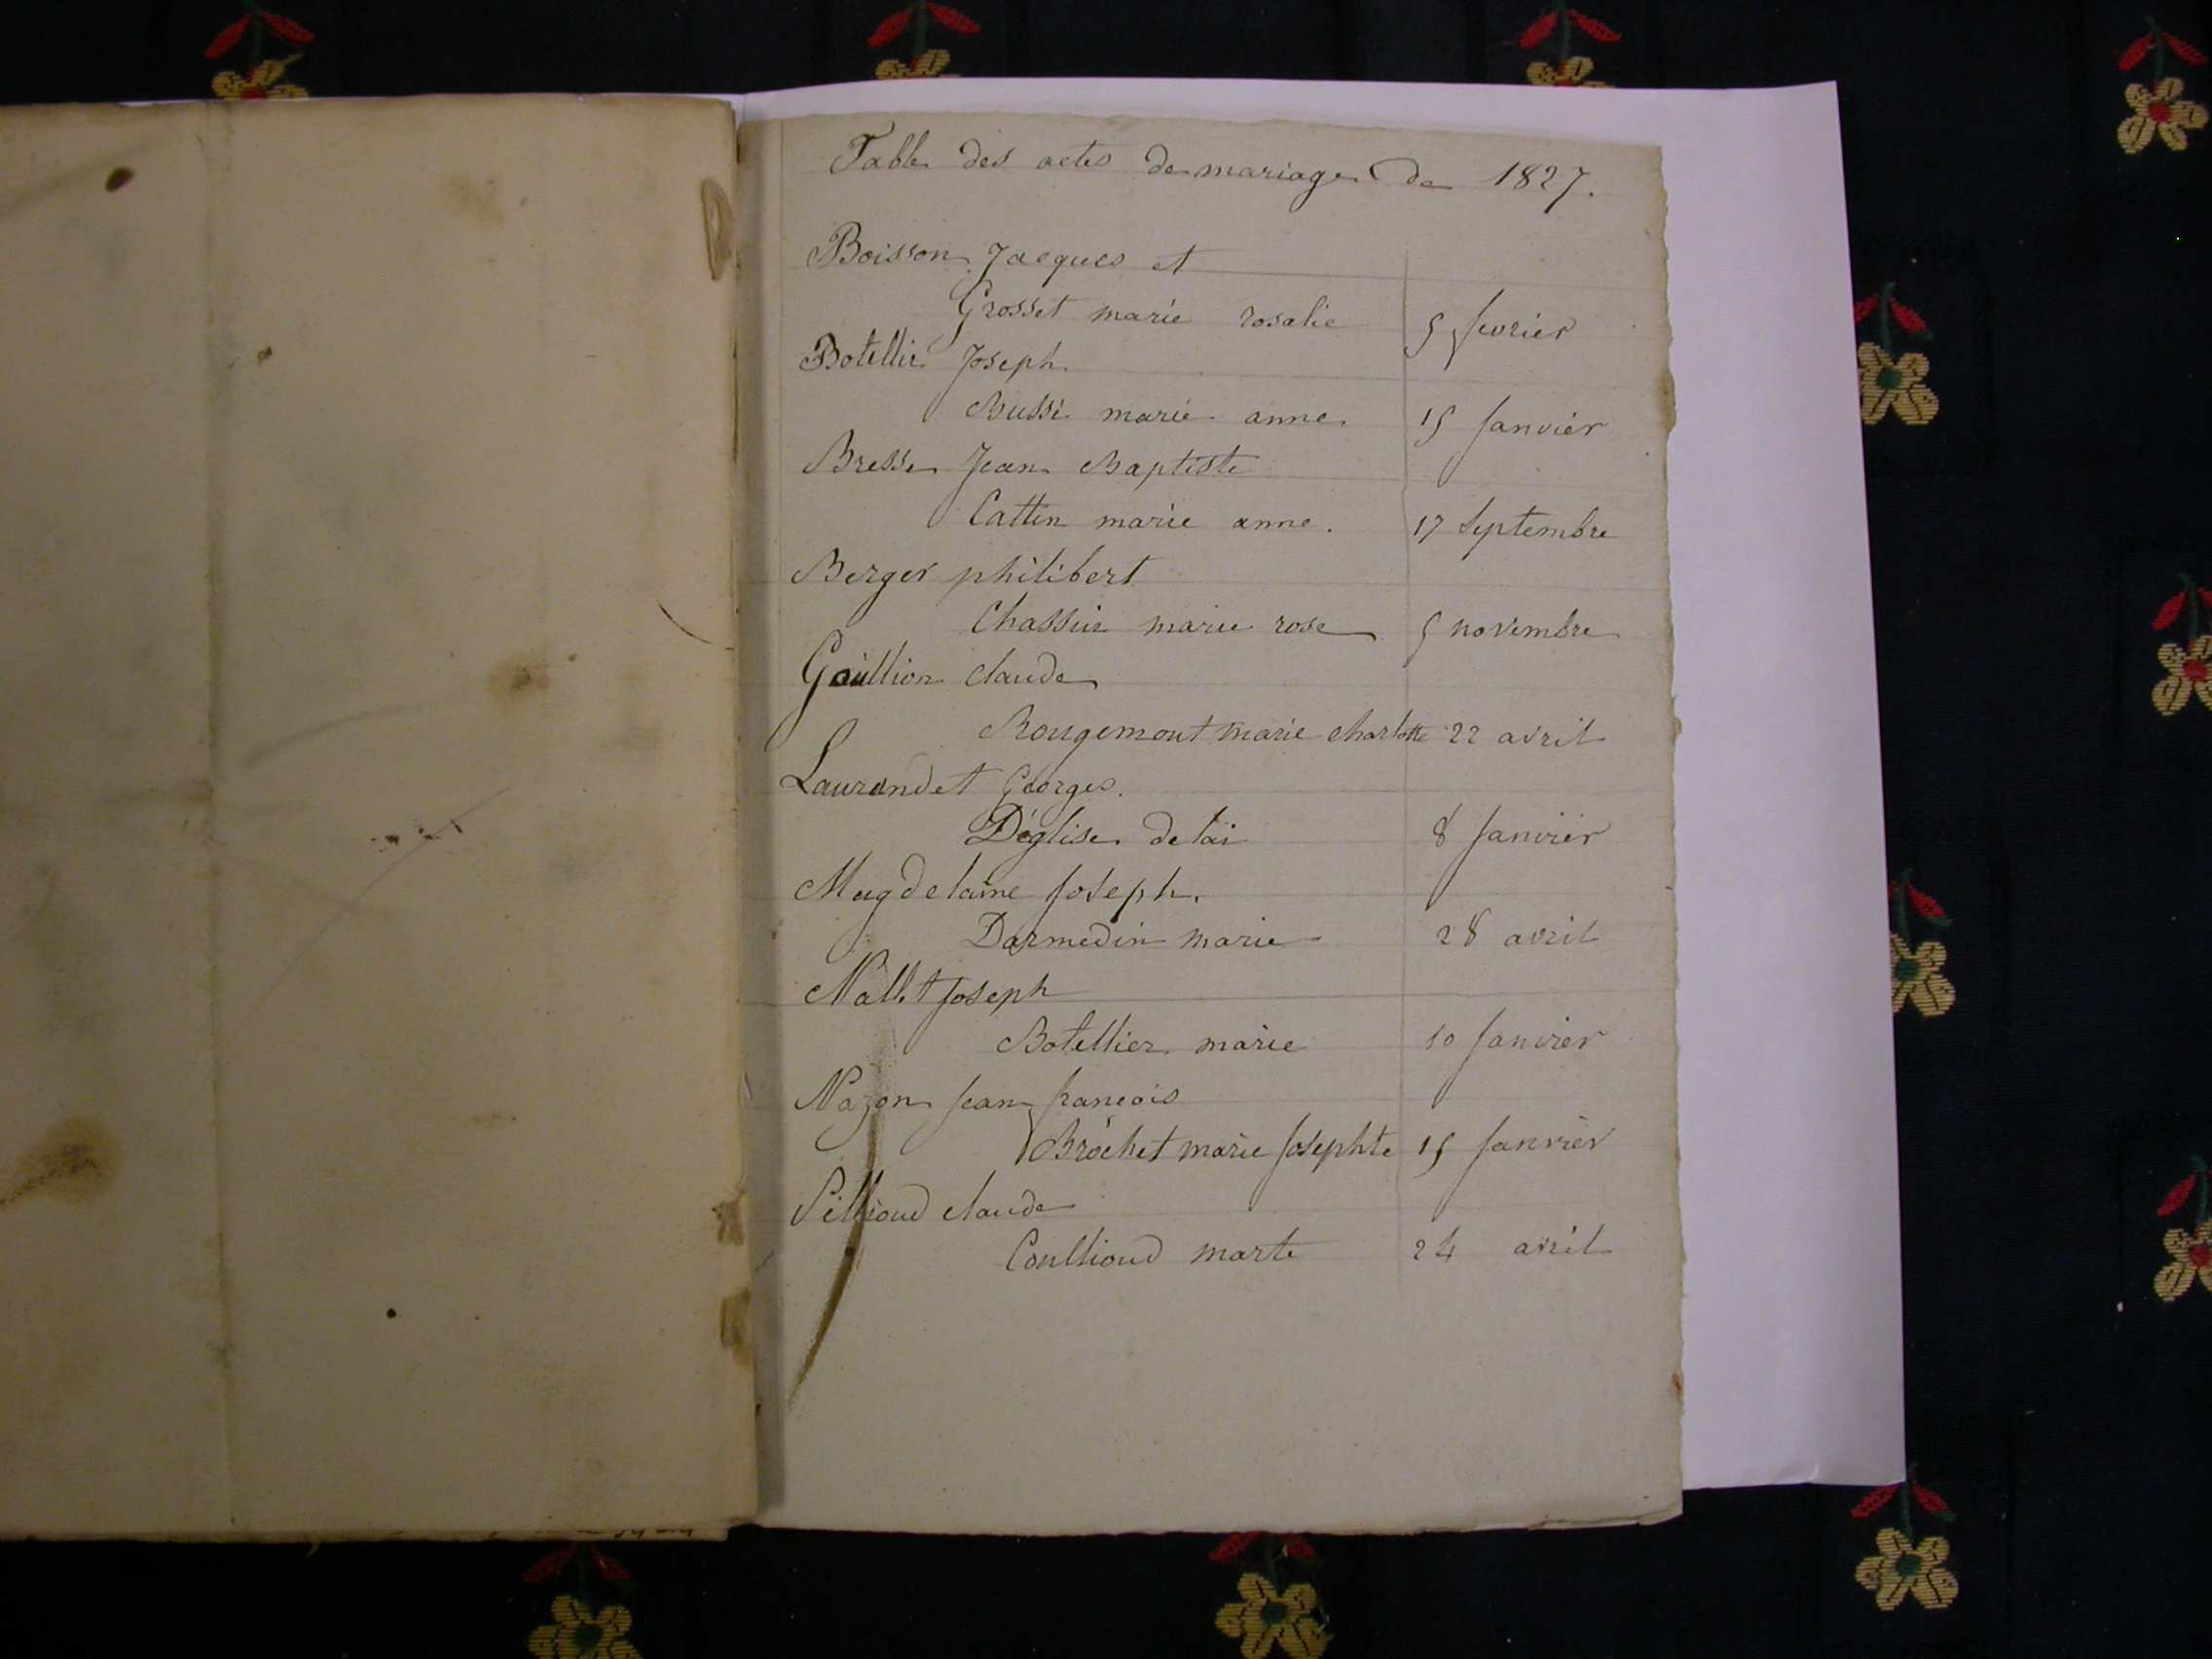 Table des actes de mariage de 1827.
Boisson Jacques et
Grosset marie rosalie 5 fevrier
Botellier Joseph
Bussi marie anne 15 Janvier
Bresse Jean Baptiste
Cattin marie anne. 17 Septembre
Berger philibert
Chassin marie rose 5 novembre
Goüllion claude
Rougemont marie charlotte 22 avril
Laurandet Georges.
Déglise 8 Janvier
Magdelaine Joseph.
Darmedin marie 28 avril
Nallet Joseph
Botellier marie 10 Janvier
Nazon Jean francois
Brochet marie Josephte 15 Janvier
Pillioud claude
Coullioud marte 24 avril